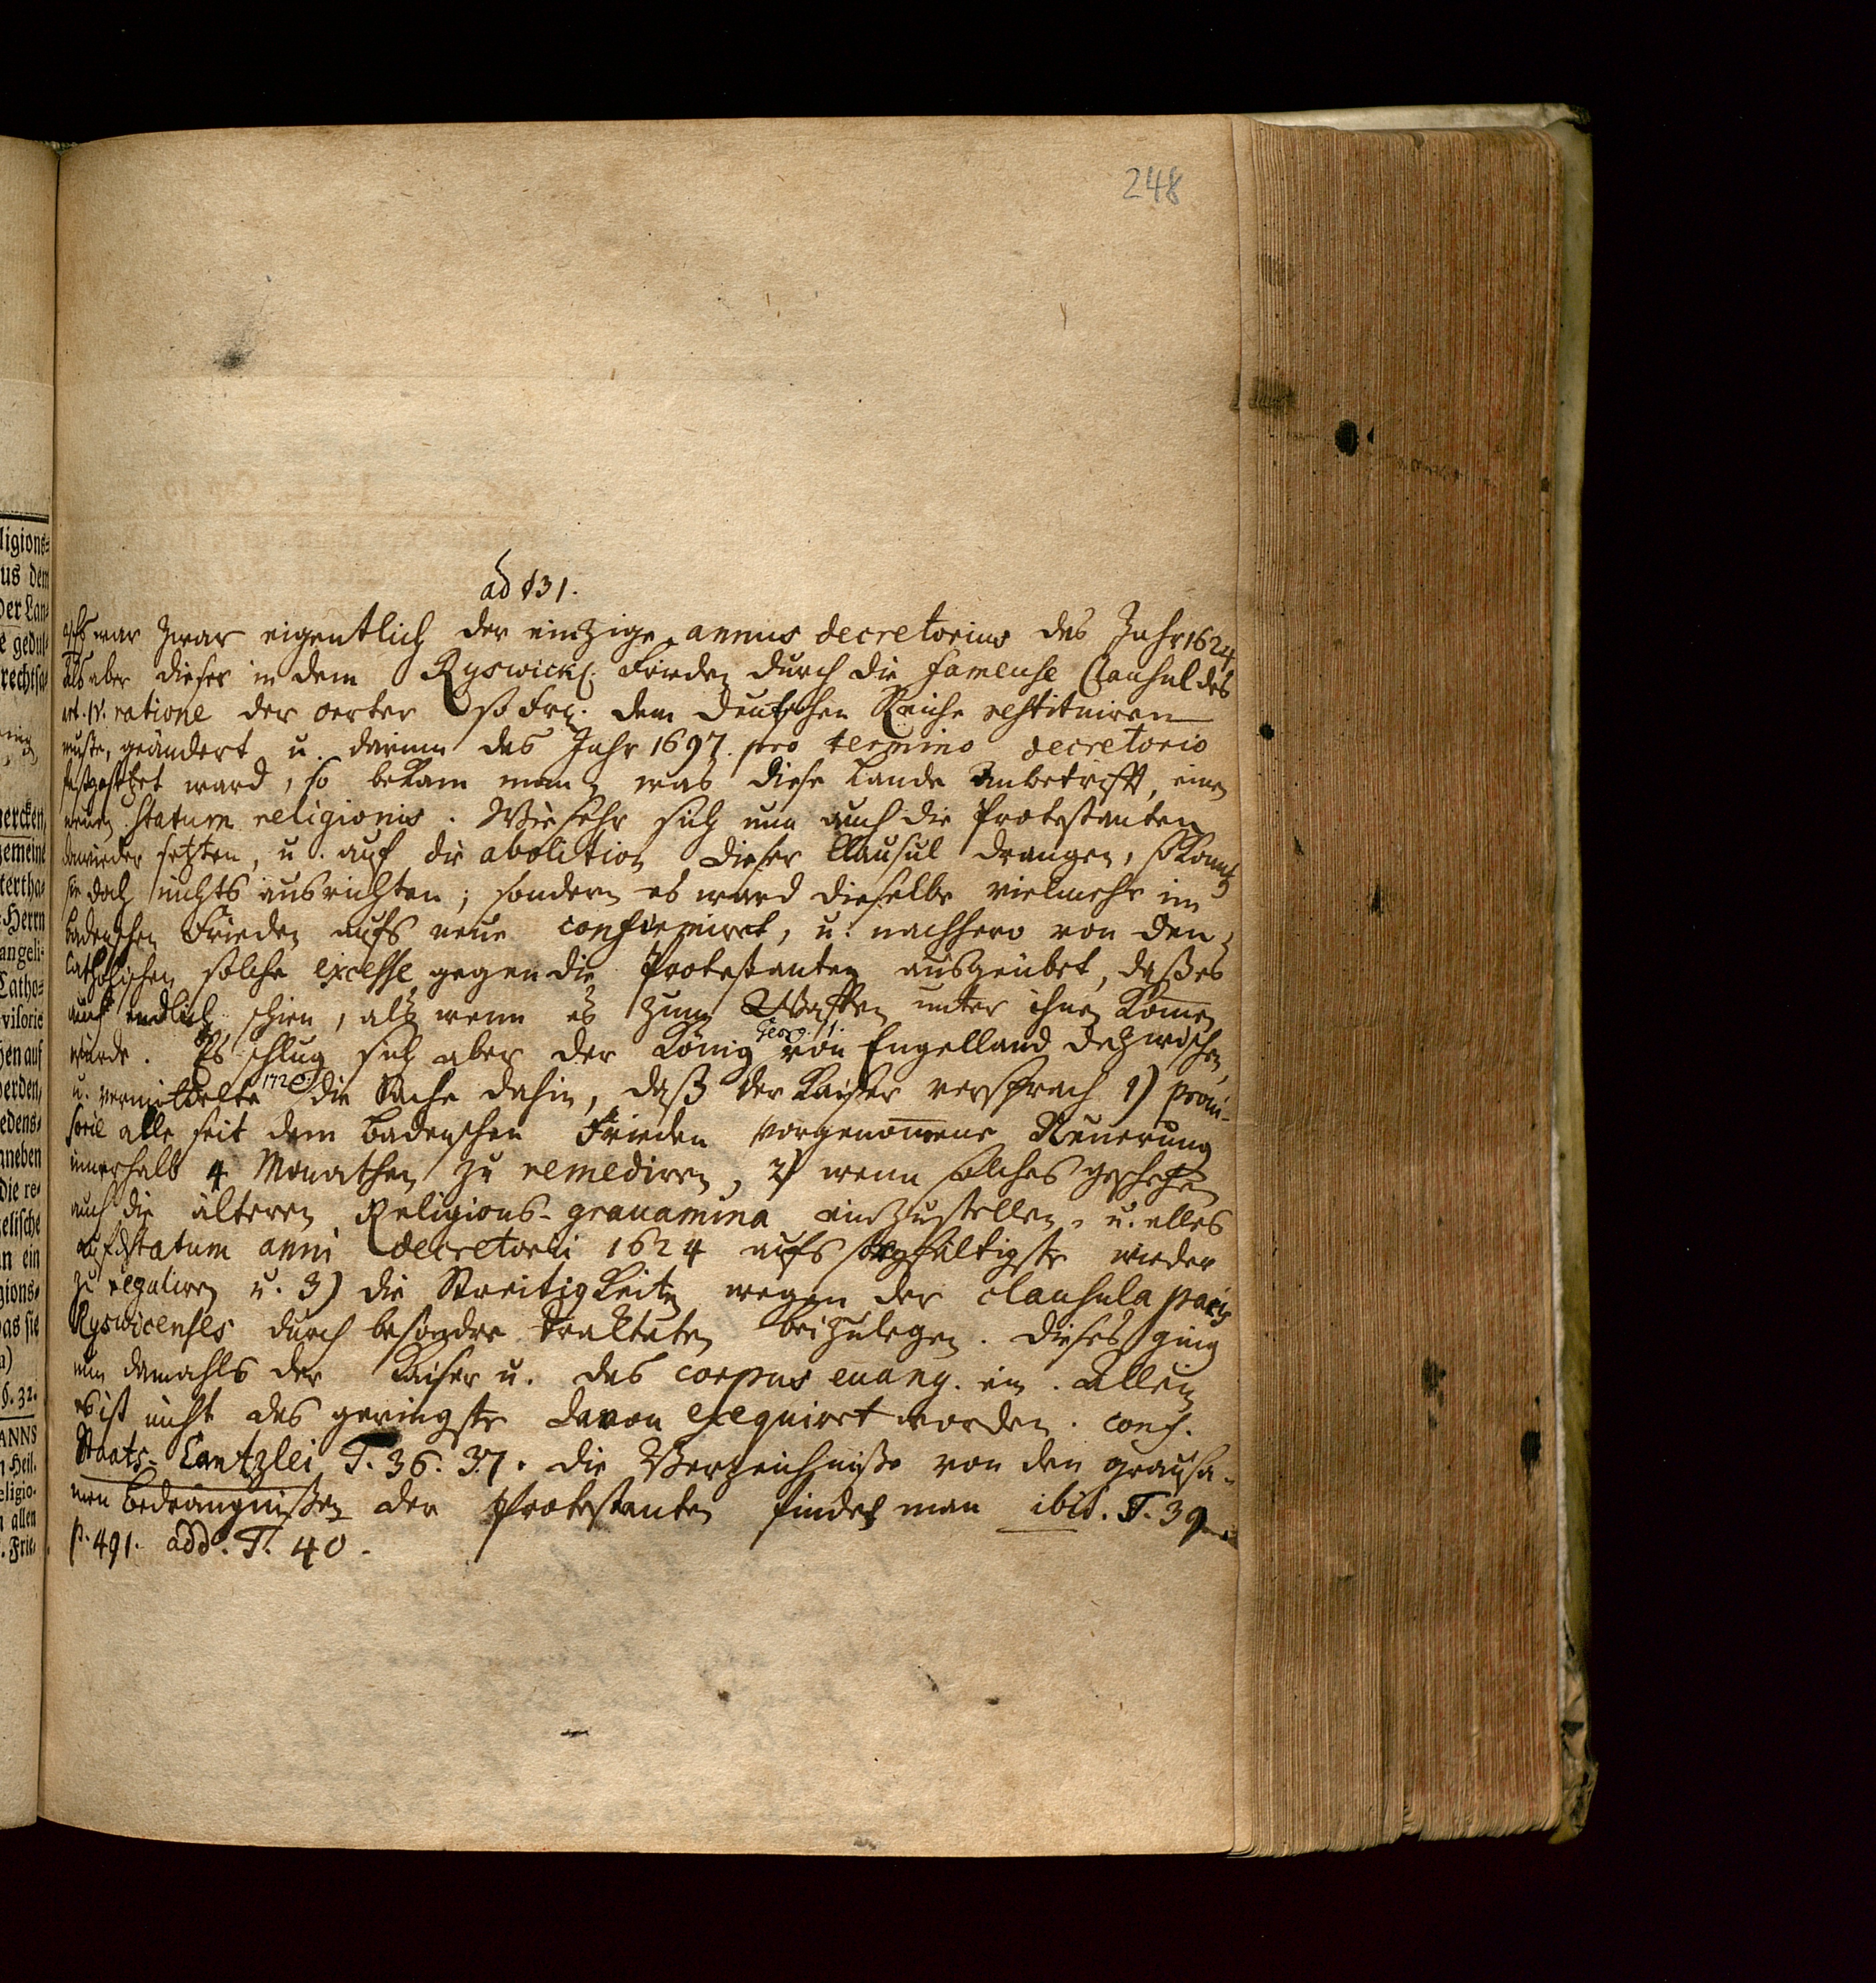 248
ligions-
us dem
der Lan-
e gedul-
rechtsa-
nercken,
gemeine
tertha-
Herrn
angeli-
Catho-
visorie
hen auf
werden,
edens-
aneben
die re-
elische
n ein
gions-
as sie
§. 32.
ANNS
Heil.
eligio-
allen
. Frie-
ad §31.
war zwar eigentlich der einzige annus decretorius das Jahr 1624
als aber dieser in dem Ryswick. Frieden durch die fameuse Clausul des
art. IV. ratione der oerter so Frc. dem deutschen Reiche restituiren
muste, geändert u. darinn das Jahr 1697. pro termino decretorio
festgesetzet ward, so bekam man was diese Lande Anbetrifft, einen
neuen statum religionis. Wie sehr sich nun auch die Protestanten
darwieder setzten, u. auf die abolition dieser Clausul drangen, so konnten
sie doch nichts ausrichten; sondern es ward dieselbe vielmehr im
Badenschen Frieden aufs neue confirmiret, u. nachhero von den
Catholischen solche excesse gegen die Protestanten ausgeübet, daß es
auch endlich schien, als wenn es zum Waffen unter ihnen kommen
würde. Es schlug sich aber der König Georg. I. von Engelland dazwischen,
u. vermittelte 1720 die Sache dahin, daß der Kaiser versprach 1) proui-
sorie alle seit dem Badenschen Frieden vorgenommene Neuerung
innerhalb 4 Monathen zu remediren, 2) wenn solches geschehen
auch die älteren Religions-grauamina einzustellen, u. alles
auf statum anni decretorii 1624 aufs sorgfältigste wieder
zu reguliren u. 3) die Streitigkeiten wegen der clausula pacis
Ryswicenses durch besondre Traktaten beizulegen. Dieses ging
nun damahls der Kaiser u. das corpus euang. ein. Allein
es ist nicht das geringste davon exequiret worden. conf.
Staats-Cantzlei T. 36. 37. Die Verzeichniße von den grausa-
men Bedrängnißen der Protestanten findet man ibid. T. 39
p. 491. add. T. 40.